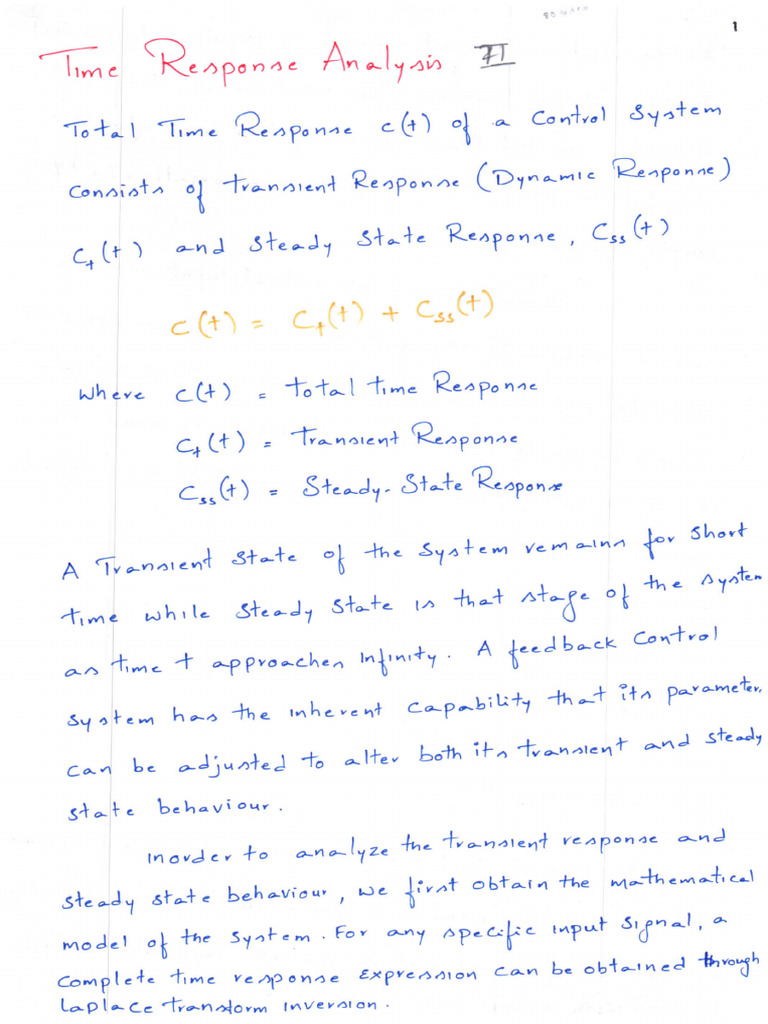 1
Time Response Analysis II
Total Time Response c(t) of a Control System
consists of transient Response (Dynamic Response)
Ct(t) and Steady State Response, Css(t)
c(t) = Ct(t) + Css(t)
where c(t) = total time Response
Ct(t) = Transient Response
Css(t) = Steady-State Response
A Transient State of the System remains for short
time while steady state is that stage of the system
as time t approaches infinity. A feedback control
system has the inherent capability that its parameter,
can be adjusted to alter both its transient and steady
state behaviour.
Inorder to analyze the transient response and
steady state behaviour, we first obtain the mathematical
model of the system. For any specific input signal, a
complete time response expression can be obtained through
Laplace transform inversion.